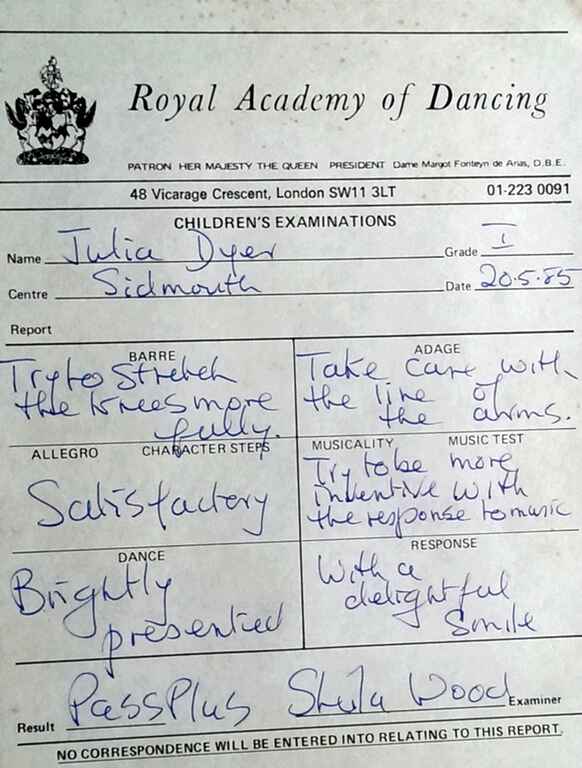 Royal Academy of Dancing
PATRON HER MAJESTY THE QUEEN PRESIDENT Dame Margot Fonteyn de Arias, D.B.E.
48 Vicarage Crescent, London SW11 3LT 01-223 0091
CHILDREN'S EXAMINATIONS
Name Julia Dyer Grade I
Centre Sidmouth Date 20.5.85
Report
BARRE
Try to Stretch
the knees more
fully.
ADAGE
Take care with
the line of
the arms.
ALLEGRO CHARACTER STEPS
Satisfactory
MUSICALITY MUSIC TEST
Try to be more
inventive with
the response to music
DANCE
Brightly
presented
RESPONSE
With a
delightful
Smile
Result Pass Plus Sheila Wood Examiner
NO CORRESPONDENCE WILL BE ENTERED INTO RELATING TO THIS REPORT.